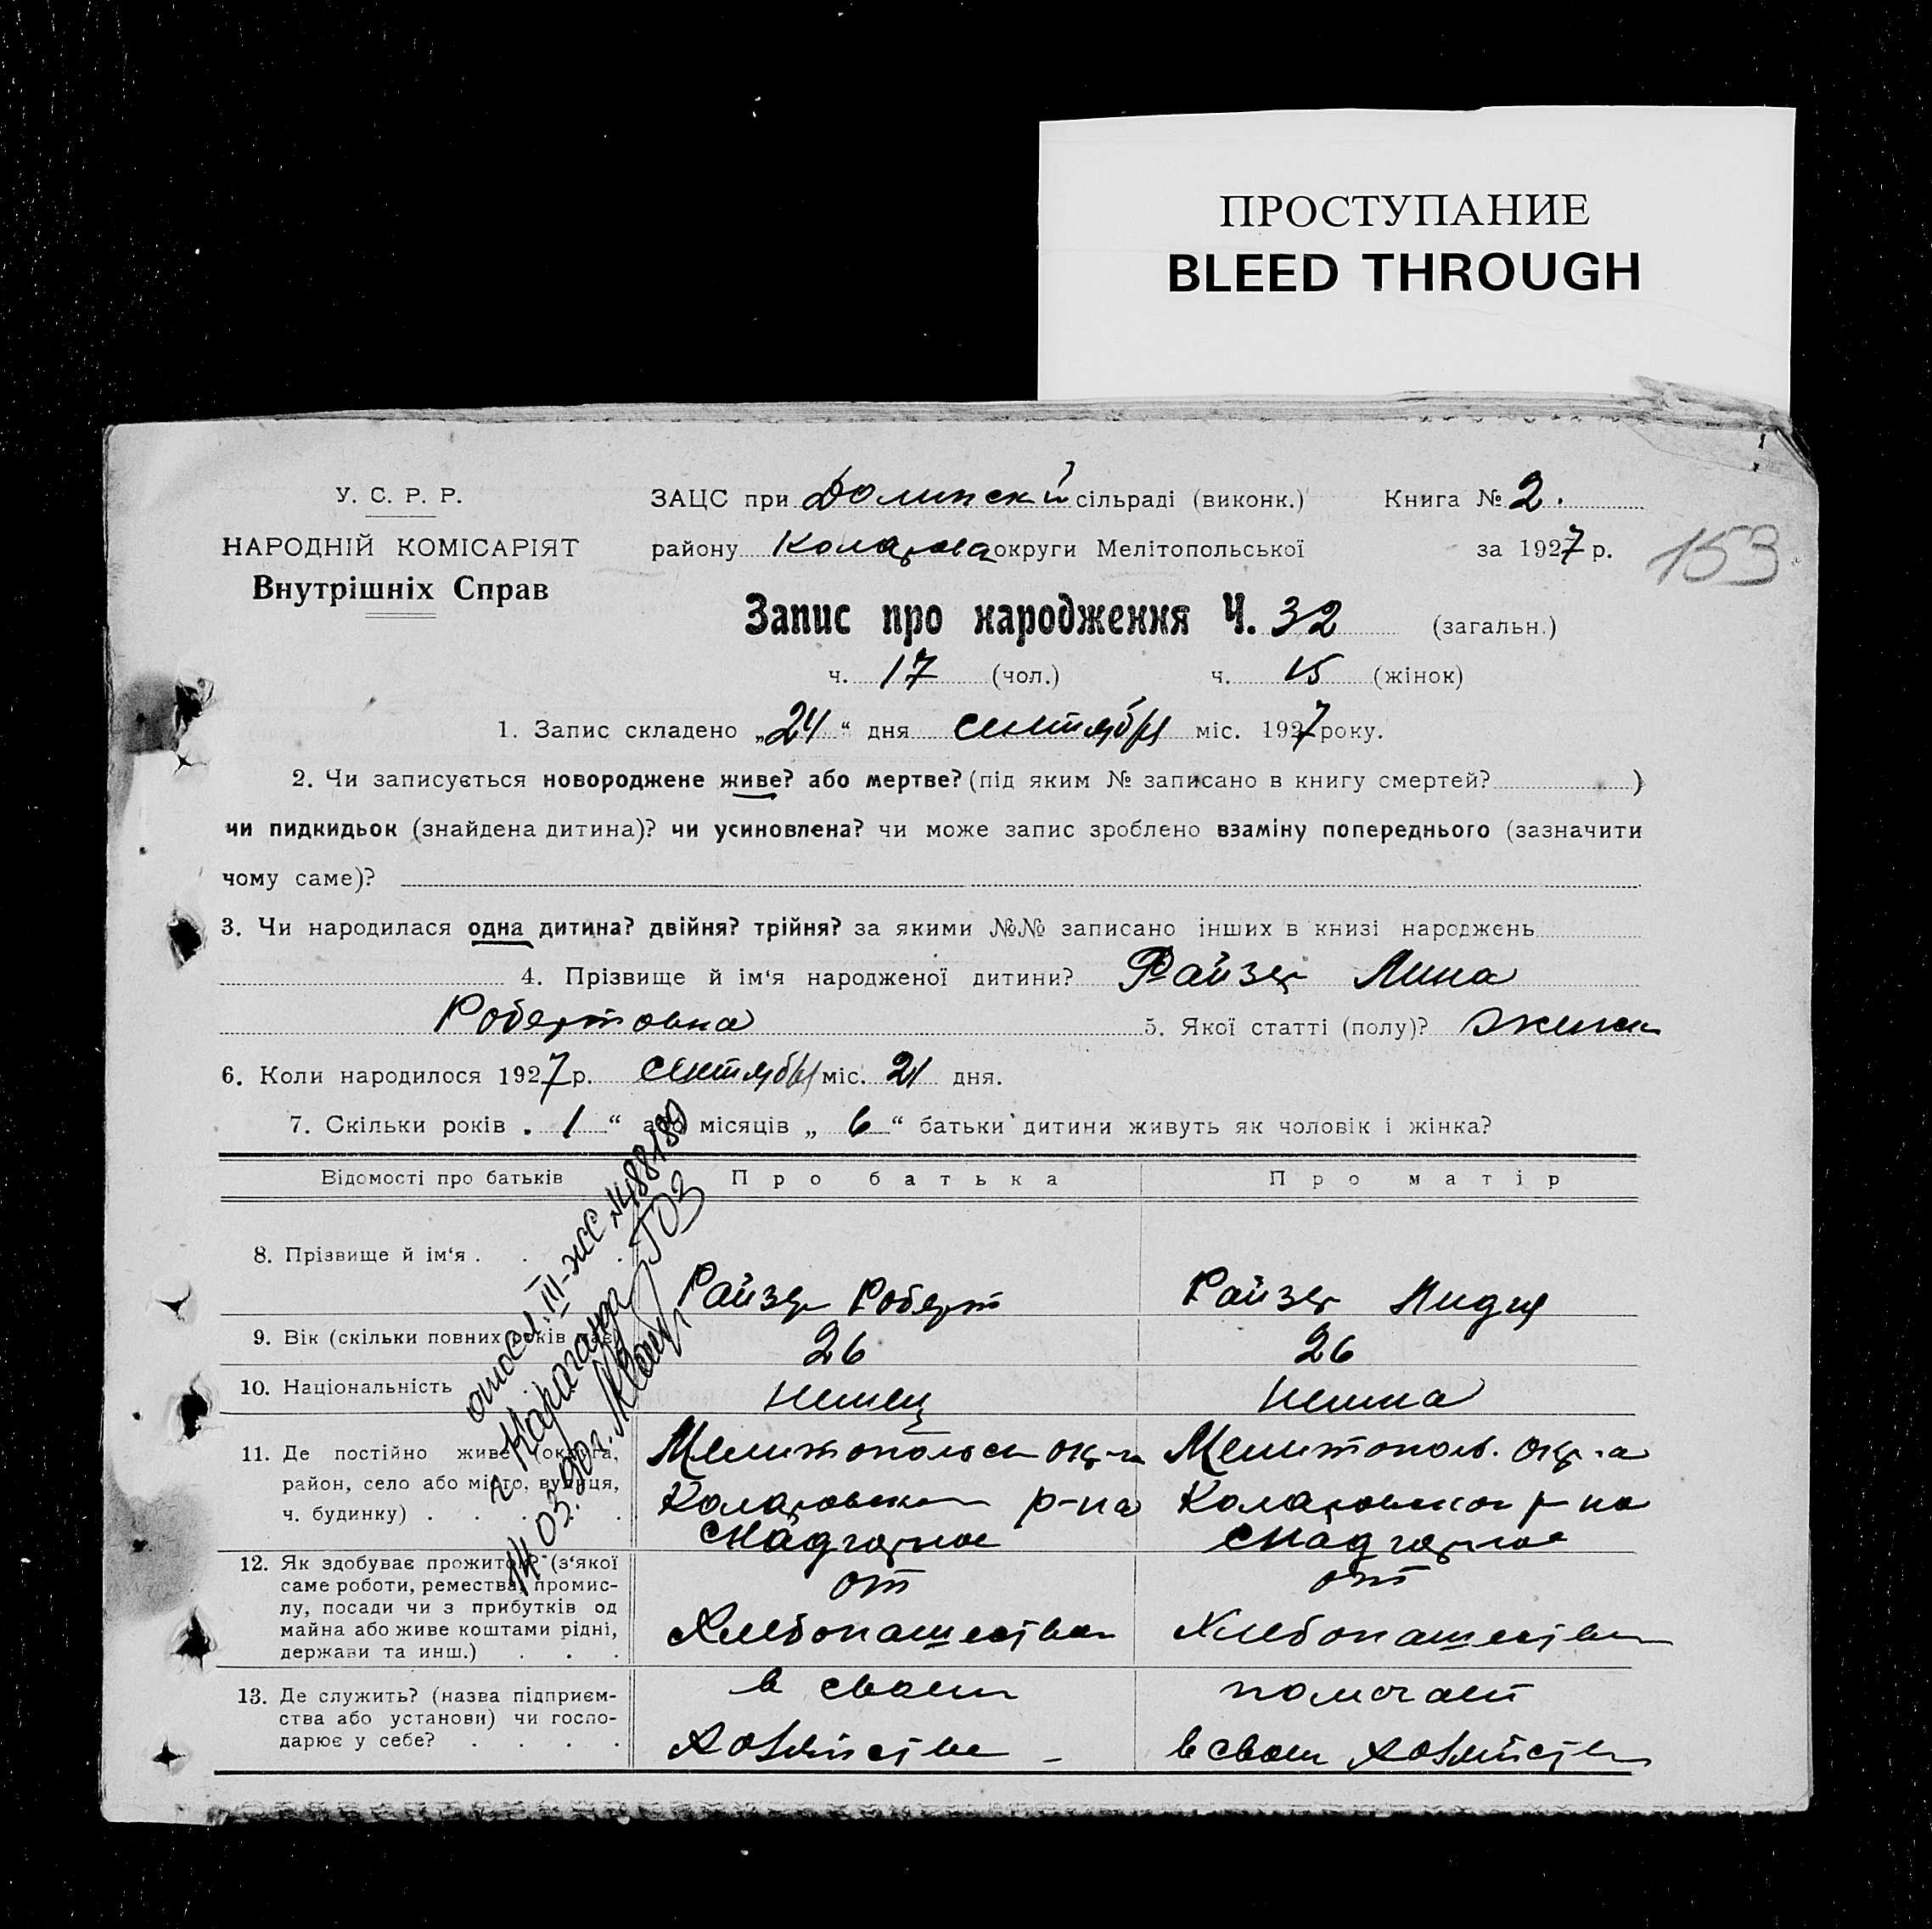 ПРОСТУПАНИЕ
BLEED THROUGH
У. С. Р. Р.
НАРОДНІЙ КОМІСАРІЯТ
Внутрішніх Справ
ЗАЦС при Долинскй сільраді (виконк.) Книга № 2.
району Коларова округи Мелітопольської за 1927 р.
153
Запис про народження Ч. 32 (загальн.)
ч. 17 (чол.) ч. 15 (жінок)
1. Запис складено „24“ дня сентября міс. 1927 року.
2. Чи записується новороджене живе? або мертве? (під яким № записано в книгу смертей? )
чи пидкидьок (знайдена дитина)? чи усиновлена? чи може запис зроблено взаміну попереднього (зазначити
чому саме)?
3. Чи народилася одна дитина? двійня? трійня? за якими №№ записано інших в книзі народжень
4. Прізвище й ім‘я народженої дитини? Райзер Лина
Робертовна 5. Якої статті (полу)? женск
6. Коли народилося 1927 р. сентября міс. 21 дня.
7. Скільки років „ 1 “ або місяців „ 6 “ батьки дитини живуть як чоловік і жінка?
Відомості про батьків Про батька Про матір
8. Прізвище й ім‘я . Райзер Роберт Райзер Лидия
9. Вік (скільки повних років має) 26 26
10. Національність немец немка
11. Де постійно живе (округа,
район, село або місто, вулиця,
ч. будинку) . . . . .
Мелитопольск окр-га
Коларовского р-на
с Надгорное
Мелитополь. окр-га
Коларовского р-на
с Надгорное
12. Як здобуває прожиток? (з‘якої
саме роботи, ремества, промис-
лу, посади чи з прибутків од
майна або живе коштами рідні,
держави та инш.) . . .
от
Хлебопашества
от
Хлебопашества
13. Де служить? (назва підприєм-
ства або установи) чи госпо-
дарює у себе? . . . .
в своем
хозяйстве
помогает
в своем хозяйстве
отосл. III-ЖС №488189
г Караганда
14 03. 90г.